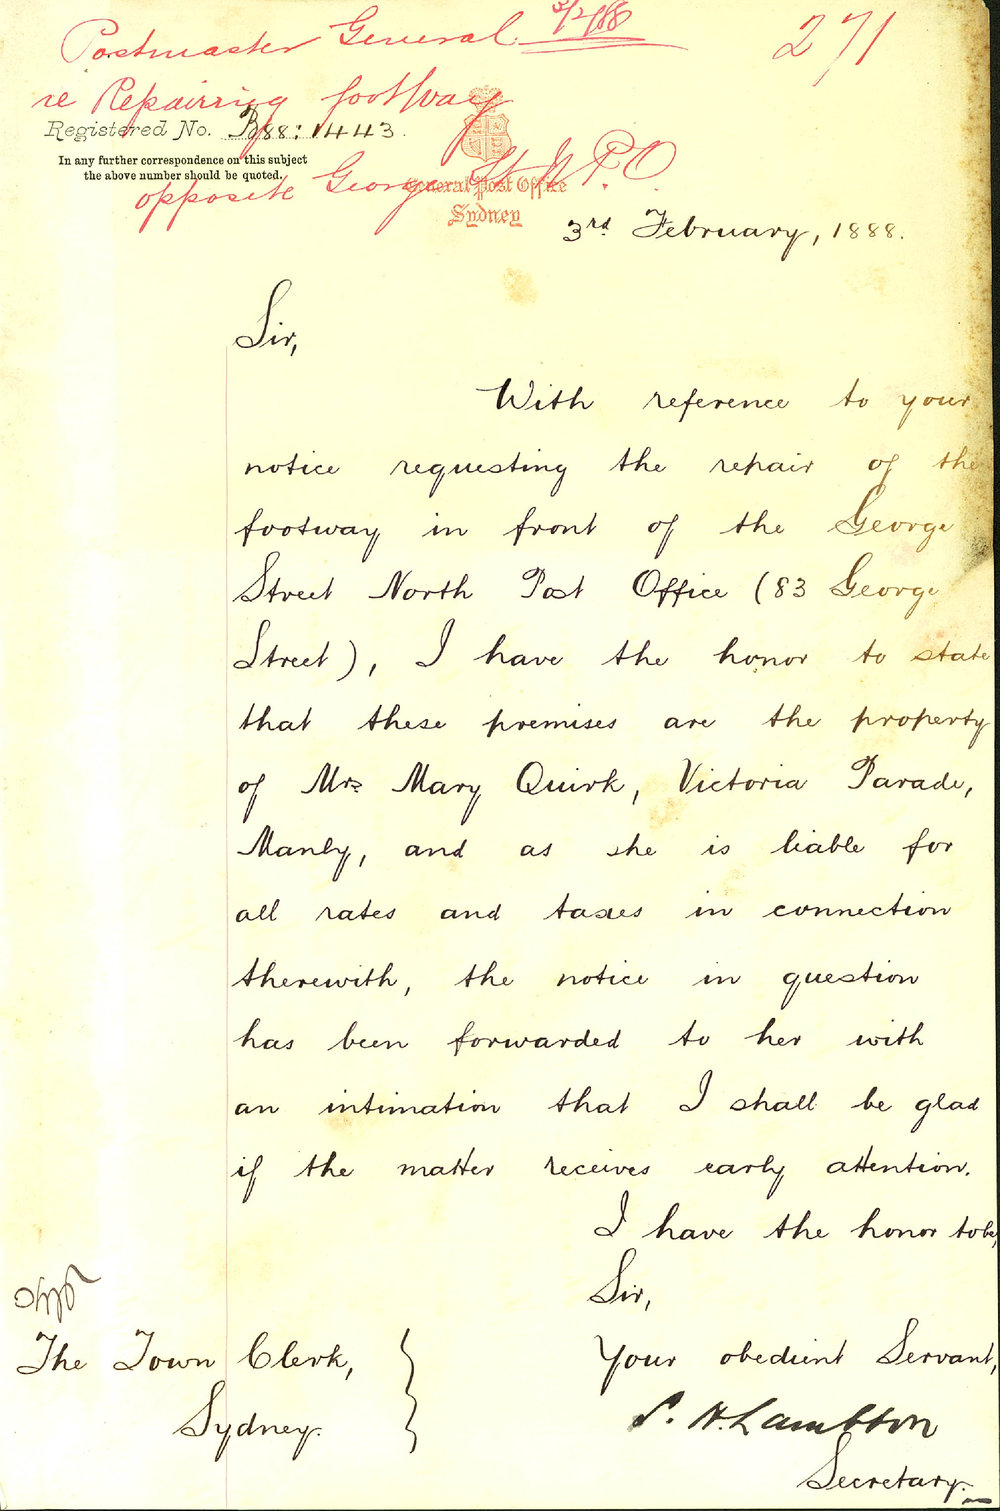 Postmaster General 3/2/88
271
re Repairing footway
opposite George St N P.O.
Registered No. B88:1443.
In any further correspondence on this subject
the above number should be quoted.
General Post Office
Sydney
3rd February, 1888.
Sir,
With reference to your
notice requesting the repair of the
footway in front of the George
Street North Post Office (83 George
Street), I have the honor to state
that these premises are the property
of Mrs Mary Quirk, Victoria Parade,
Manly, and as she is liable for
all rates and taxes in connection
therewith, the notice in question
has been forwarded to her with
an intimation that I shall be glad
if the matter receives early attention.
I have the honor to be,
Sir,
Your obedient Servant,
S. H. Lambton
Secretary.
The Town Clerk,
Sydney.